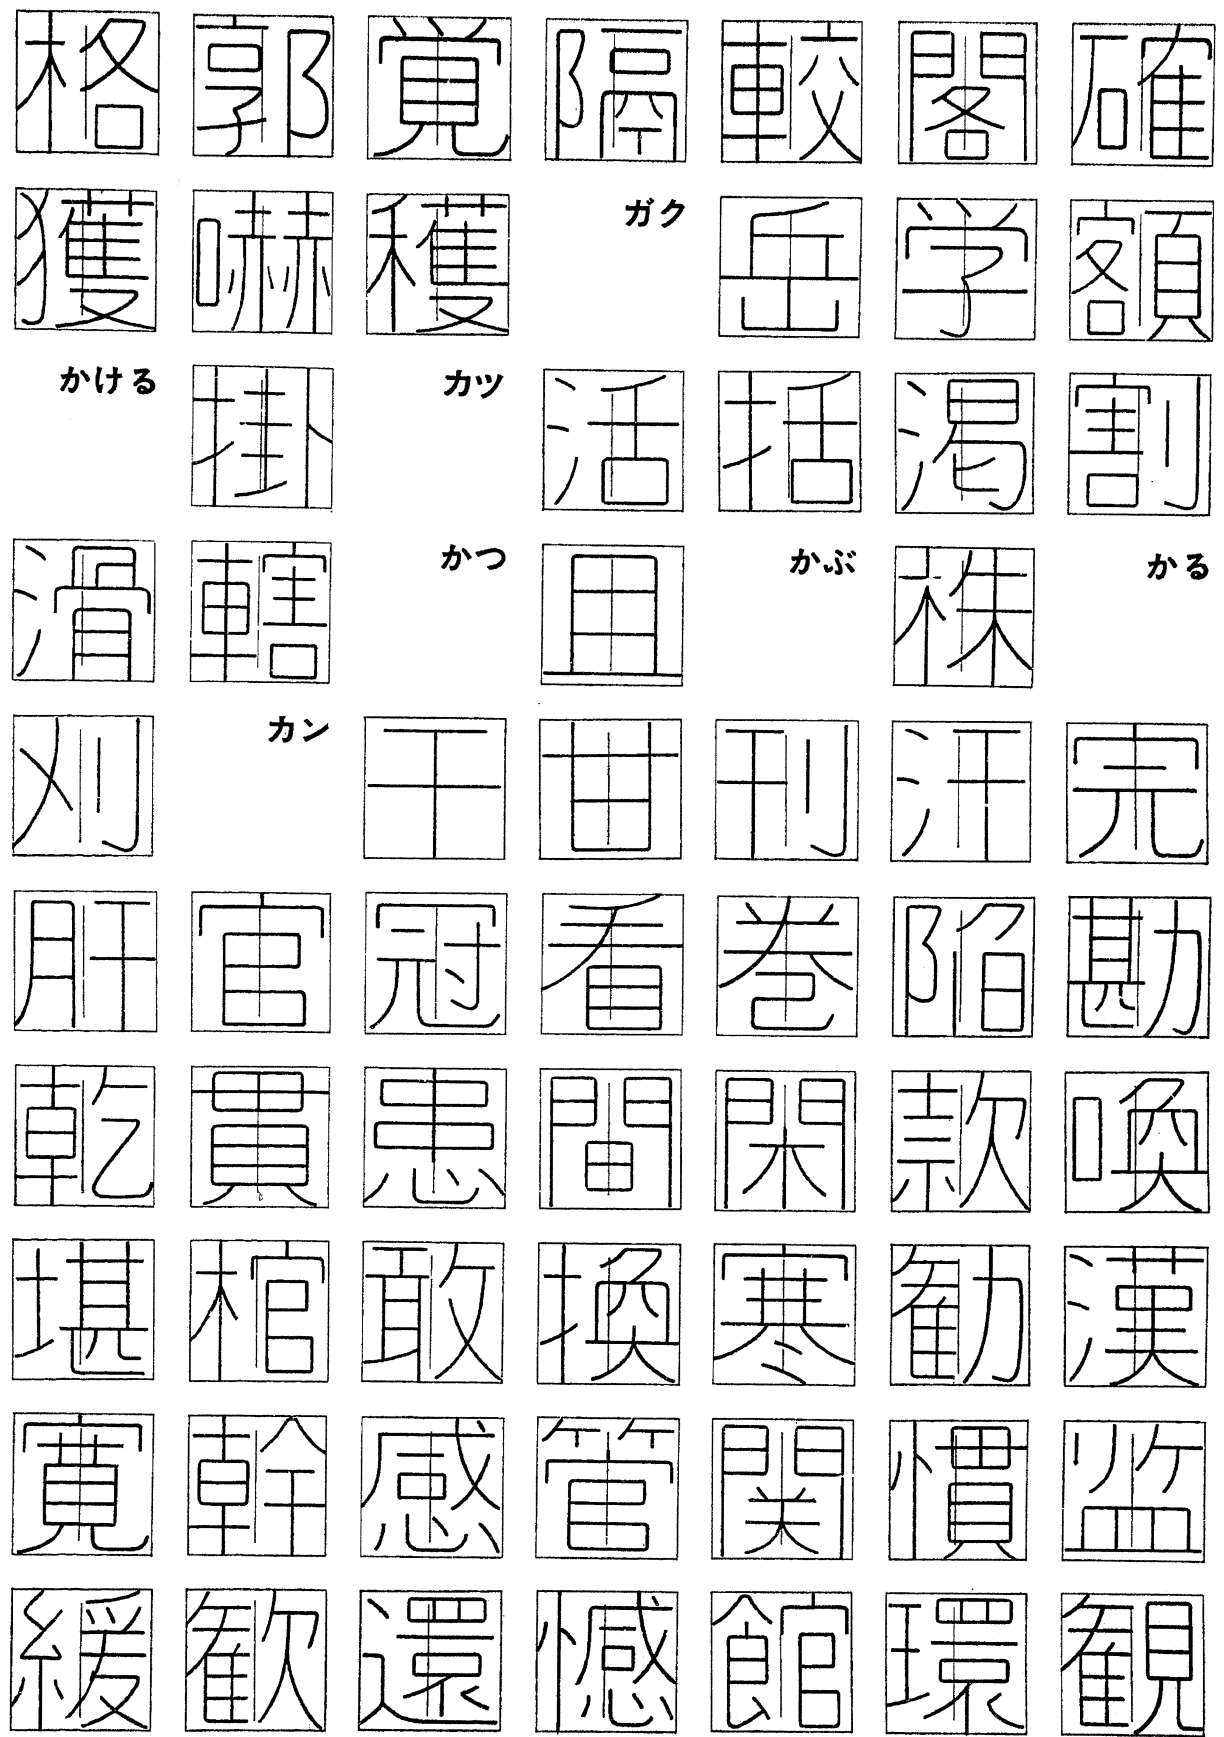 格 郭 覚 隔 較 閣 確
獲 嚇 穫 ガク 岳 学 額
かける 掛 カツ 活 括 渇 割
滑 轄 かつ 且 かぶ 株 かる
刈 カン 干 甘 刊 汗 完
肝 官 冠 看 巻 陥 勘
乾 貫 患 間 閑 款 喚
堪 棺 敢 換 寒 勧 漢
寛 幹 感 管 関 慣 监
緩 歓 還 憾 館 環 観